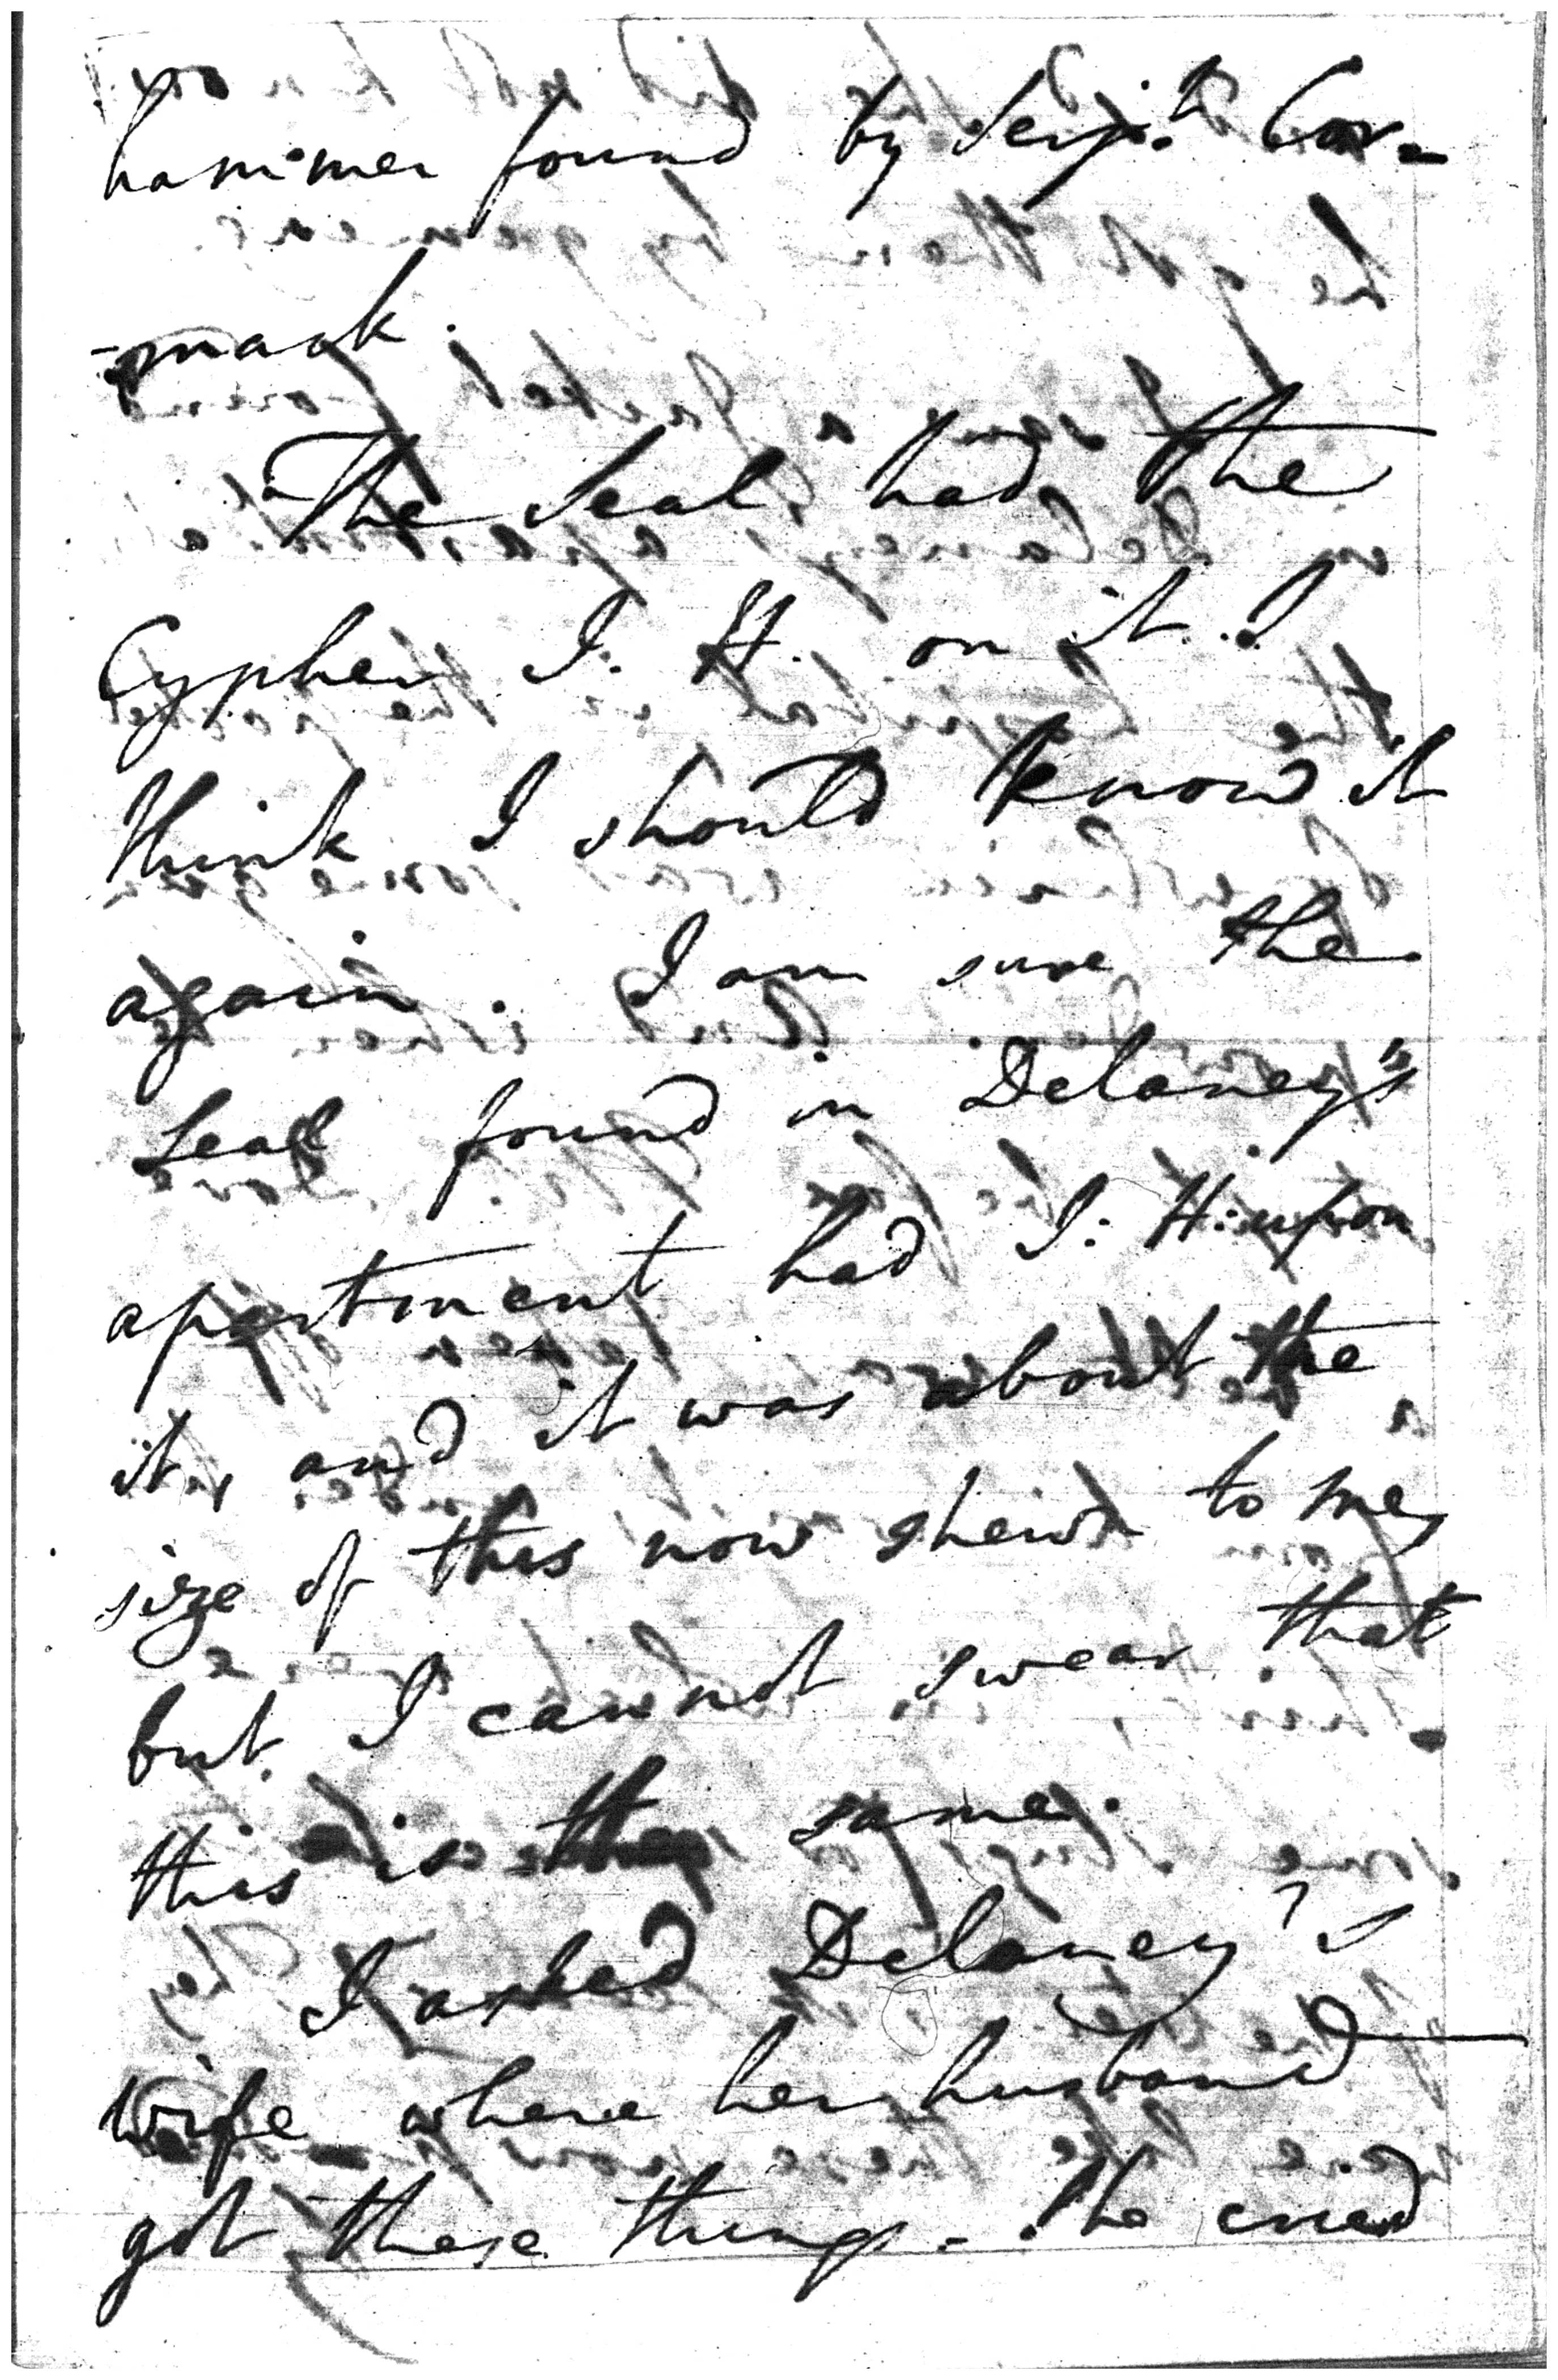 hammer found by Serj.t Cor-
-mack.
The Seal had the
Cypher I: H. on it. I
think I should know it
again. I am sure the
Seal found in Delaney's
apartment had I: H: upon
it, and it was about the
size of this now shewn to me,
but I cannot swear that
this is the same.
I asked Delaney's
wife where her husband
got these things - She cried